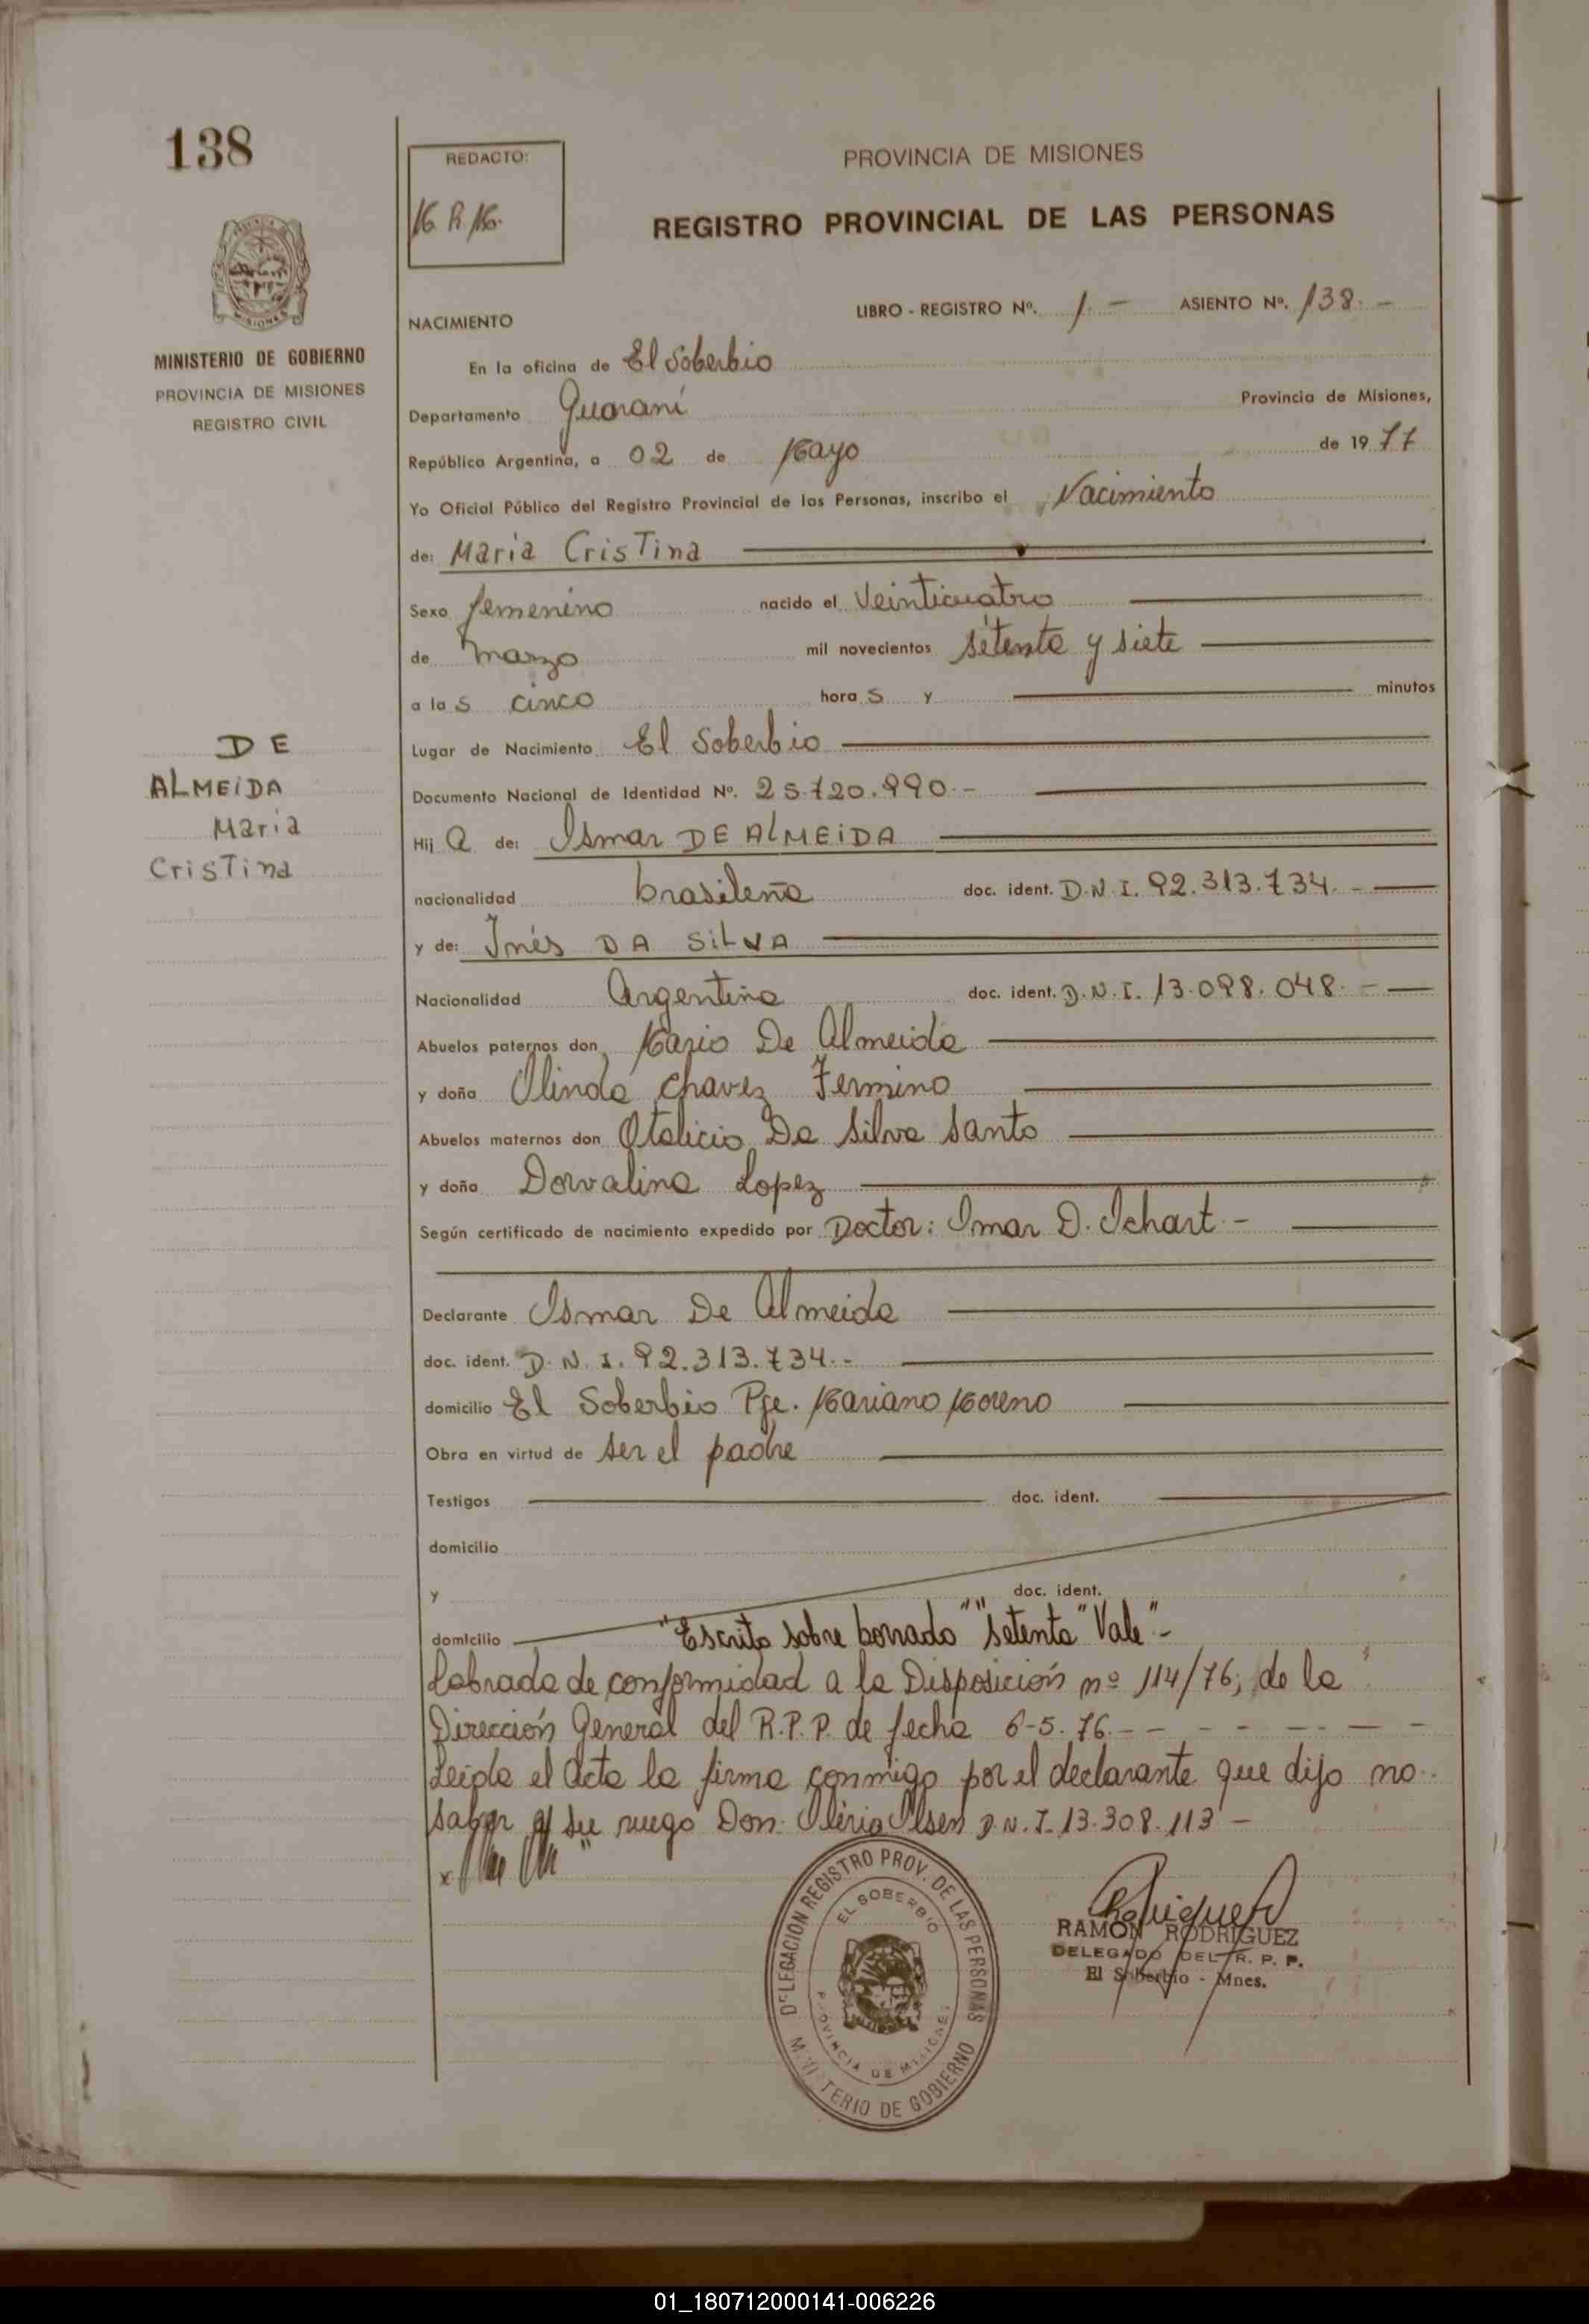 138
REDACTO:
PROVINCIA DE MISIONES
REGISTRO PROVINCIAL DE LAS PERSONAS
MINISTERIO DE GOBIERNO
PROVINCIA DE MISIONES
REGISTRO CIVIL
LIBRO - REGISTRO Nº. 1 - ASIENTO Nº. 138 -
NACIMIENTO
En la oficina de El Soberbio
Departamento Guaraní Provincia de Misiones,
República Argentina, a 02 de Mayo de 1977
Yo Oficial Público del Registro Provincial de las Personas, inscribo el Nacimiento
de: Maria Cristina
Sexo femenino nacido el Veinticuatro
de marzo mil novecientos setenta y siete
a las cinco horas y minutos
Lugar de Nacimiento El Soberbio
DE
ALMEIDA
Maria
Cristina
Documento Nacional de Identidad Nº. 25.720.990.-
Hija de: Ismar DE ALMEIDA
nacionalidad brasileña doc. ident. D.N.I. 92.313.734.-
y de: Inés DA SILVA
Nacionalidad Argentina doc. ident. D.N.I. 13.098.048.-
Abuelos paternos don Mario De Almeida
y doña Olinda Chavez Fermino
Abuelos maternos don Otalicio Da Silva Santo
y doña Dorvalina Lopez
Según certificado de nacimiento expedido por Doctor: Imar D. Ichart -
Declarante Ismar De Almeida
doc. ident. D.N.I. 92.313.734.-
domicilio El Soberbio Pje. Mariano Moreno
Obra en virtud de ser el padre
Testigos doc. ident.
domicilio
y doc. ident.
domicilio "Escrito sobre borrado" "setenta" Vale"-
Labrada de conformidad a la Disposición nº 114/76, de la
Dirección General del R.P.P. de fecha 6-5-76.- - - - - - -
Leida el Acta la firma conmigo por el declarante que dijo no
saber a su ruego Don: Olsen D.N.I. 13.308.113 -
DELEGACION REGISTRO PROV. DE LAS PERSONAS
EL SOBERBIO
PROVINCIA DE MISIONES
MINISTERIO DE GOBIERNO
RAMON RODRIGUEZ
DELEGADO DEL R. P. P.
El Soberbio - Mnes.
01_180712000141-006226